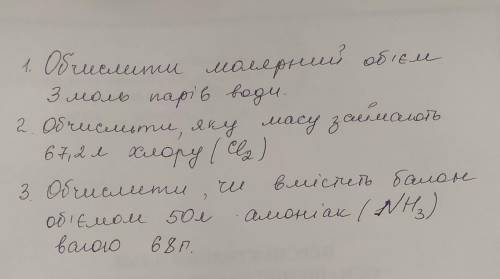 1. Обчислити молярний об'єм
3 моль парів води.
2. Обчислити, яку масу займають
67,2 л хлору (Cl2)
3. Обчислити, чи вмістить балон
об'ємом 50л амоніак (NH3)
вагою 68г.